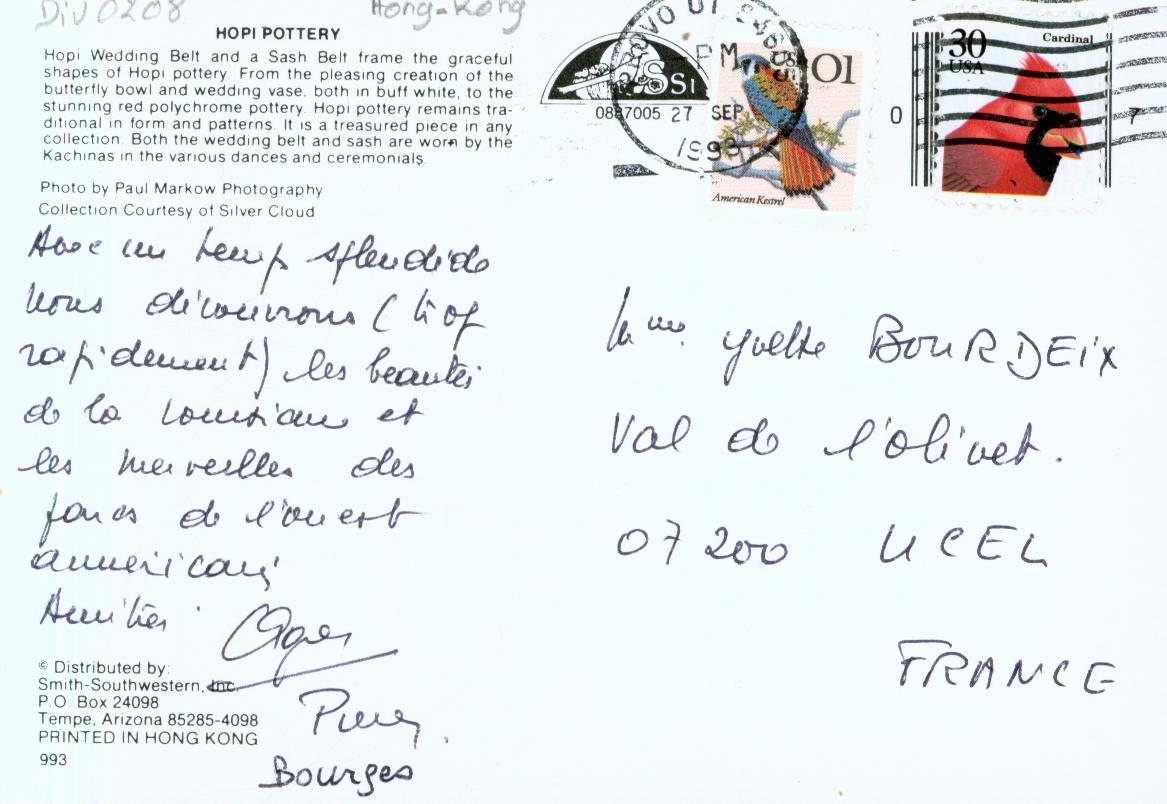 DiV0208
Hong-Kong
HOPI POTTERY
Hopi Wedding Belt and a Sash Belt frame the graceful
shapes of Hopi pottery. From the pleasing creation of the
butterfly bowl and wedding vase, both in buff white, to the
stunning red polychrome pottery. Hopi pottery remains tra-
ditional in form and patterns. It is a treasured piece in any
collection. Both the wedding belt and sash are worn by the
Kachinas in the various dances and ceremonials.
Photo by Paul Markow Photography
Collection Courtesy of Silver Cloud
SSI
0887005
PM
27 SEP
1993
01
American Kestrel
30
USA
Cardinal
0
7
Avec un temps splendide
nous découvrons (trop
rapidement) les beautés
de la Louisiane et
les merveilles des
parcs de l'ouest
américain
Amitiés
Bourges
Mme Yvette BOURDEIX
Val de l'olivet.
07200 UCEL
FRANCE
© Distributed by:
Smith-Southwestern, Inc.
P.O. Box 24098
Tempe, Arizona 85285-4098
PRINTED IN HONG KONG
993